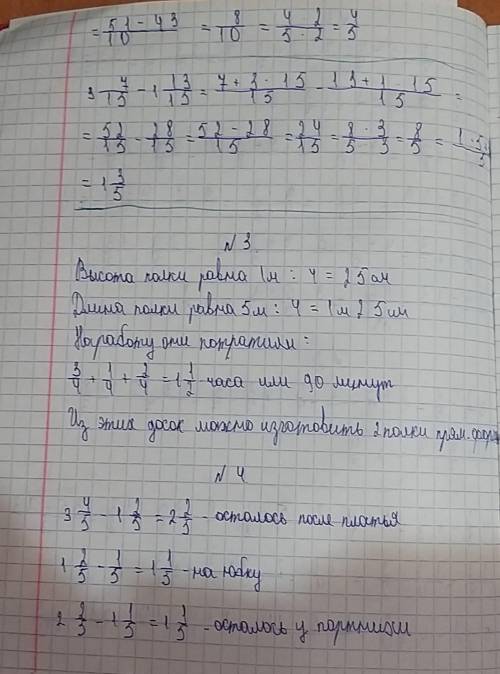 = 51 - 43 / 10 = 8/10 = 4 · 2 / 5 · 2 = 4/5
3 7/15 - 1 13/15 = 7 + 3 · 15 / 15 - 13 + 1 · 15 / 15 =
= 52/15 - 28/15 = 52 - 28 / 15 = 24/15 = 8 · 3 / 5 · 3 = 8/5 =
= 1 3/5
N 3
Высота полки равна 1м : 4 = 25 см
Длина полки равна 5м : 4 = 1м 25 см
На работу они потратили :
3/4 + 1/4 + 2/4 = 1 1/2 часа или 90 минут
Из этих досок можно изготовить 2 полки прям.
N 4
3 4/5 - 1 2/5 = 2 2/5 - осталось после платья
1 2/5 - 1/5 = 1 1/5 - на юбку
2 2/5 - 1 1/5 = 1 1/5 - осталось у портнихи